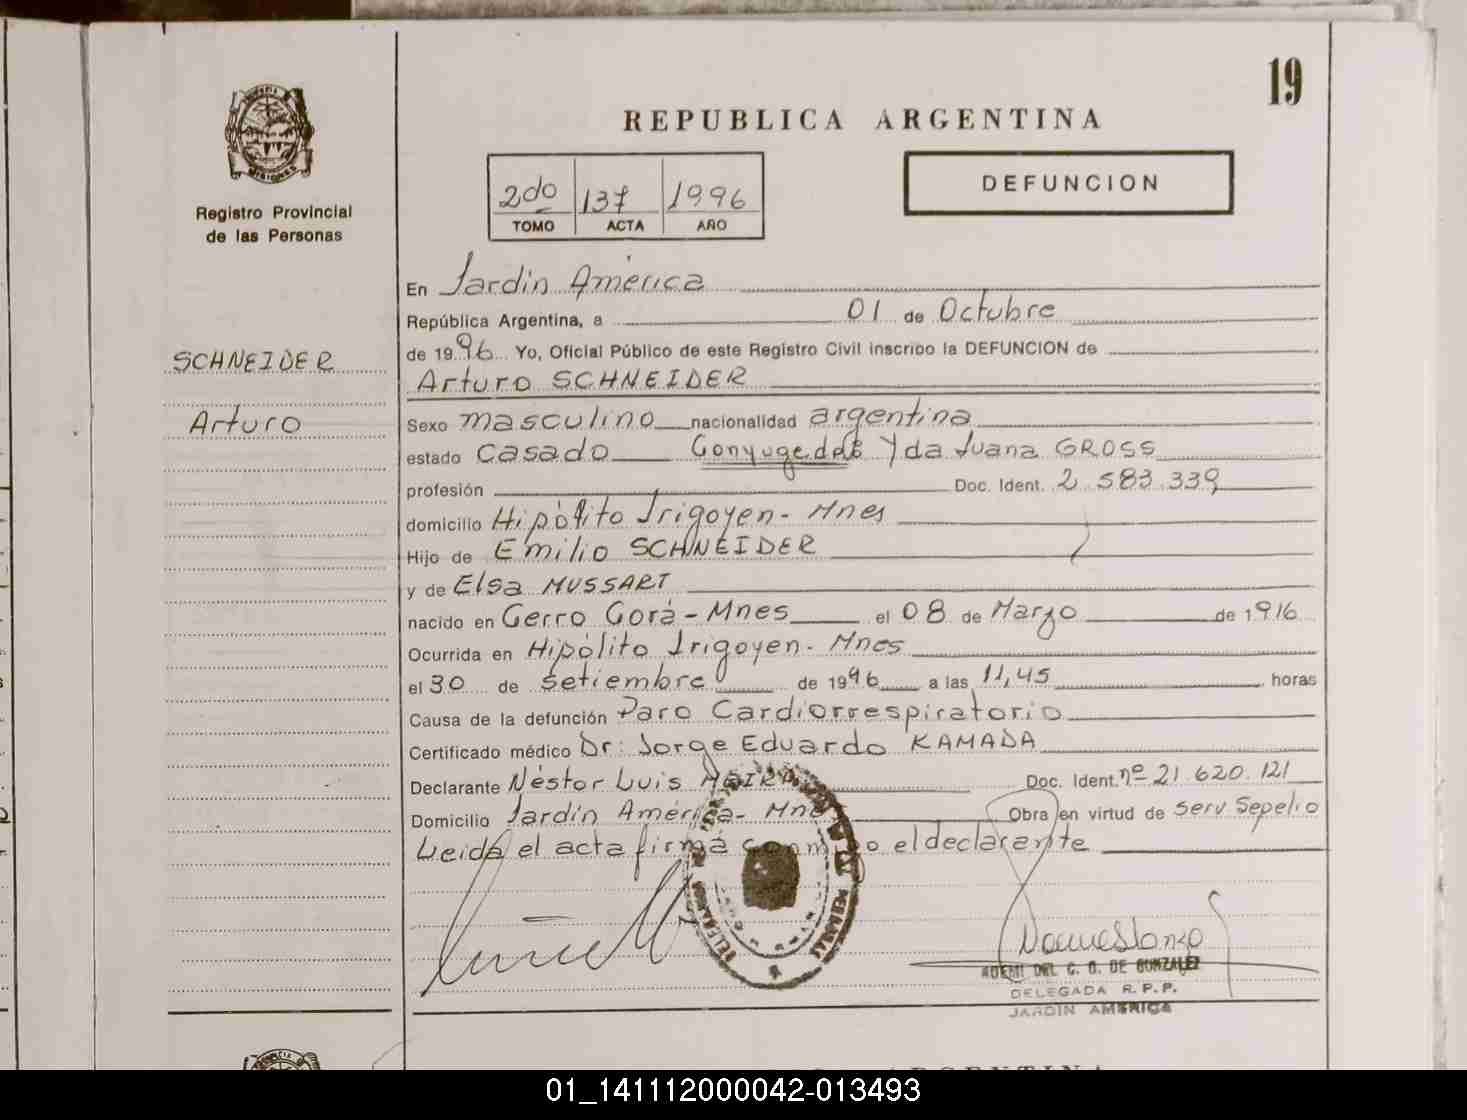 19
REPUBLICA ARGENTINA
MISIONES
Registro Provincial
de las Personas
2do 137 1996
TOMO ACTA AÑO
DEFUNCION
SCHNEIDER
Arturo
En Jardín América
República Argentina, a 01 de Octubre
de 1996 Yo, Oficial Público de este Registro Civil inscribo la DEFUNCION de
Arturo SCHNEIDER
Sexo masculino nacionalidad argentina
estado casado Conyuge de Yda Juana GROSS
profesión Doc. Ident. 2.583.339
domicilio Hipólito Irigoyen - Mnes
Hijo de Emilio SCHNEIDER
y de Elsa MUSSART
nacido en Cerro Corá - Mnes el 08 de Marzo de 1916
Ocurrida en Hipólito Irigoyen - Mnes
el 30 de setiembre de 1996 a las 11,45 horas
Causa de la defunción Paro Cardiorrespiratorio
Certificado médico Dr: Jorge Eduardo KAMADA
Declarante Néstor Luis Doc. Ident. nº 21.620.121
Domicilio Jardín América - Mnes Obra en virtud de Serv Sepelio
Leída el acta firma conmigo el declarante
DEL C. G. DE GONZALEZ
DELEGADA R.P.P.
JARDIN AMERICA
ARGENTINA
01_141112000042-013493